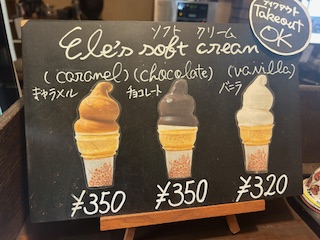 ソフト クリーム
Ele's soft cream
テイクアウト
Takeout
OK
(caramel) (chocolate) (vanilla)
キャラメル チョコレート バニラ
¥350 ¥350 ¥320